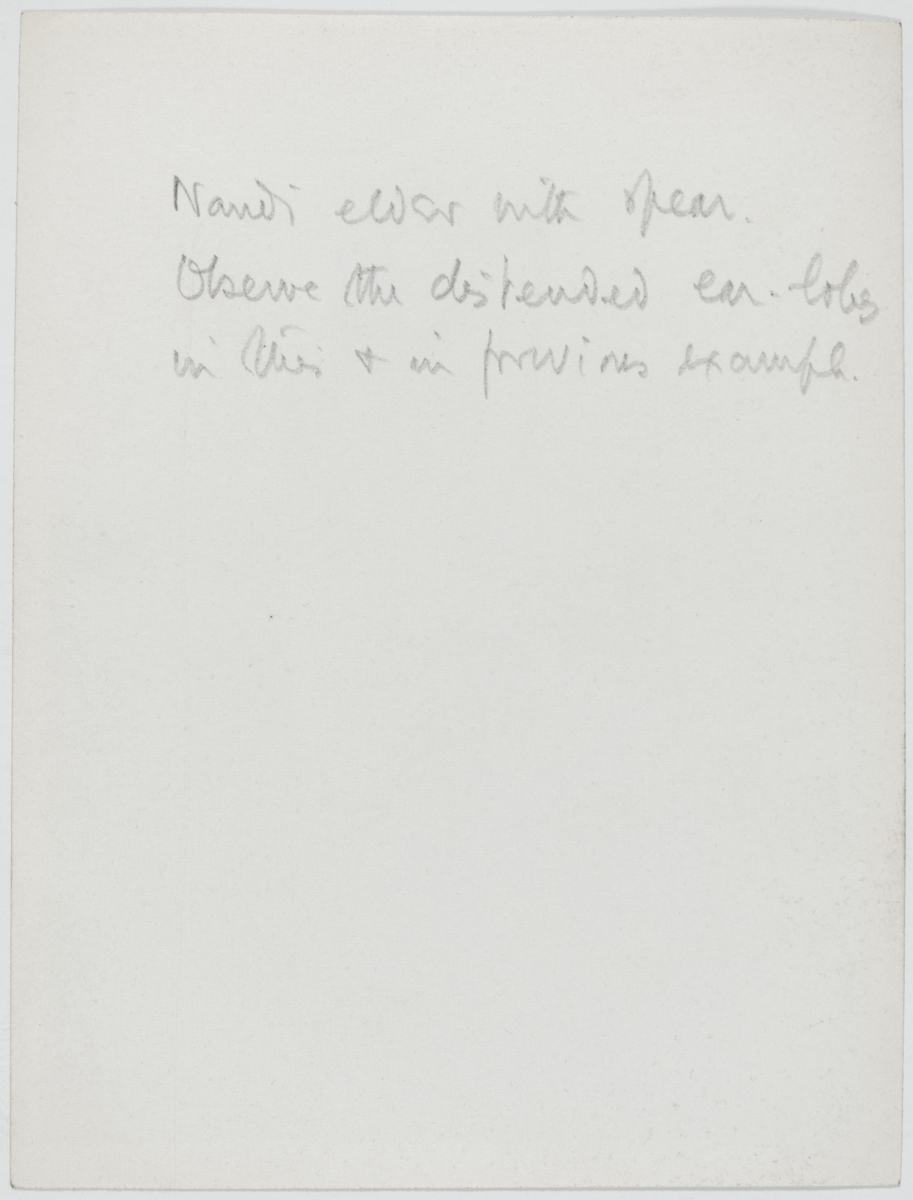 Nandi elder with spear.
Observe the distended ear-lobes
in this & in previous example.